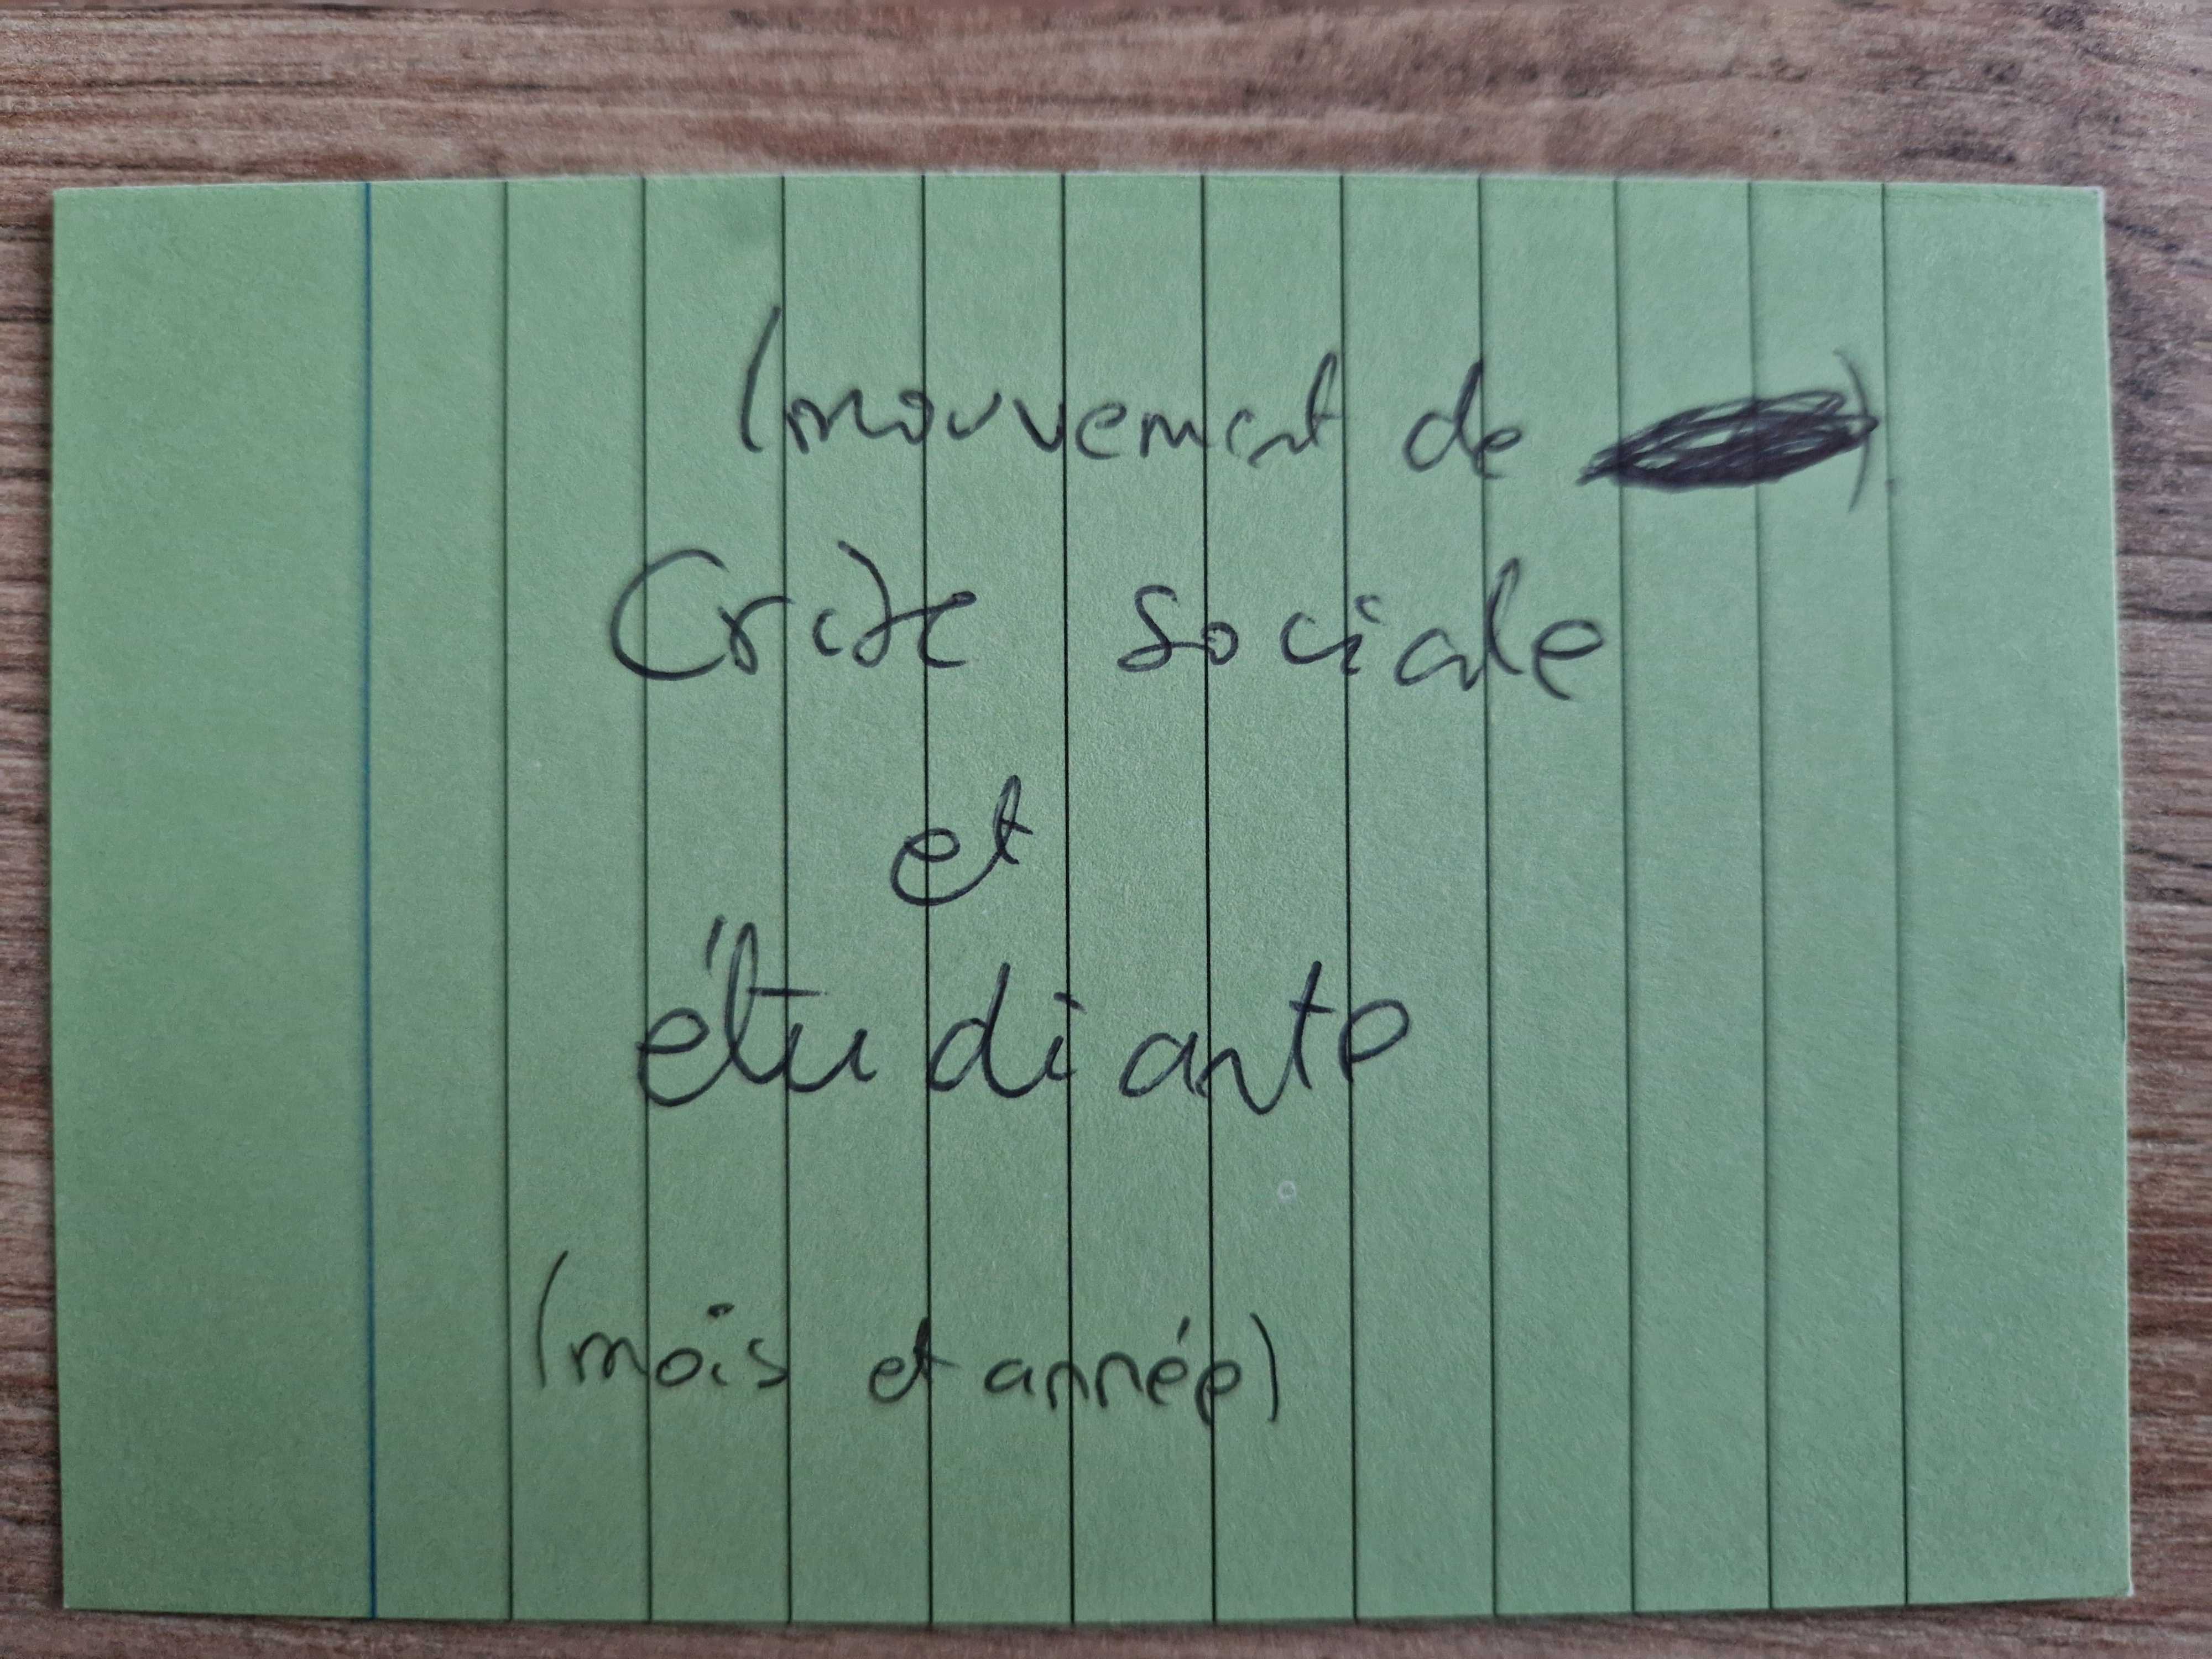 (mouvement de )
Crise sociale
et
étudiante
(mois et année)